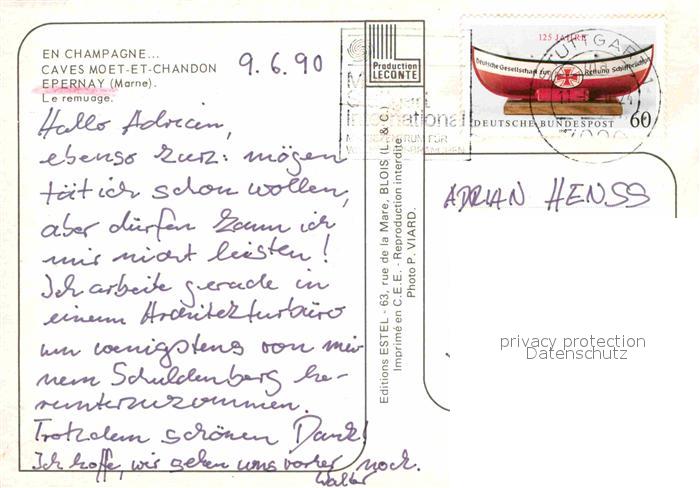 EN CHAMPAGNE...
CAVES MOET-ET-CHANDON
EPERNAY (Marne).
Le remuage.
9.6.90
Hallo Adrian,
ebenso kurz: mögen
tät ich schon wollen,
aber dürfen kann ich
mir nicht leisten!
Ich arbeite gerade in
einem Architekturbüro
um wenigstens von mei-
nem Schuldenberg he-
runterzukommen.
Trotzdem schönen Dank!
Ich hoffe, wir sehen uns vorher noch.
Walter
Production
LECONTE
Editions ESTEL - 63, rue de la Mare, BLOIS (L. & C.)
Imprimé en C.E.E. - Reproduction interdite
Photo P. VIARD.
125 JAHRE
Deutsche Gesellschaft zur Rettung Schiffbrüchiger
DEUTSCHE BUNDESPOST 60
STUTTGART
7000
international
ADRIAN HENSS
privacy protection
Datenschutz